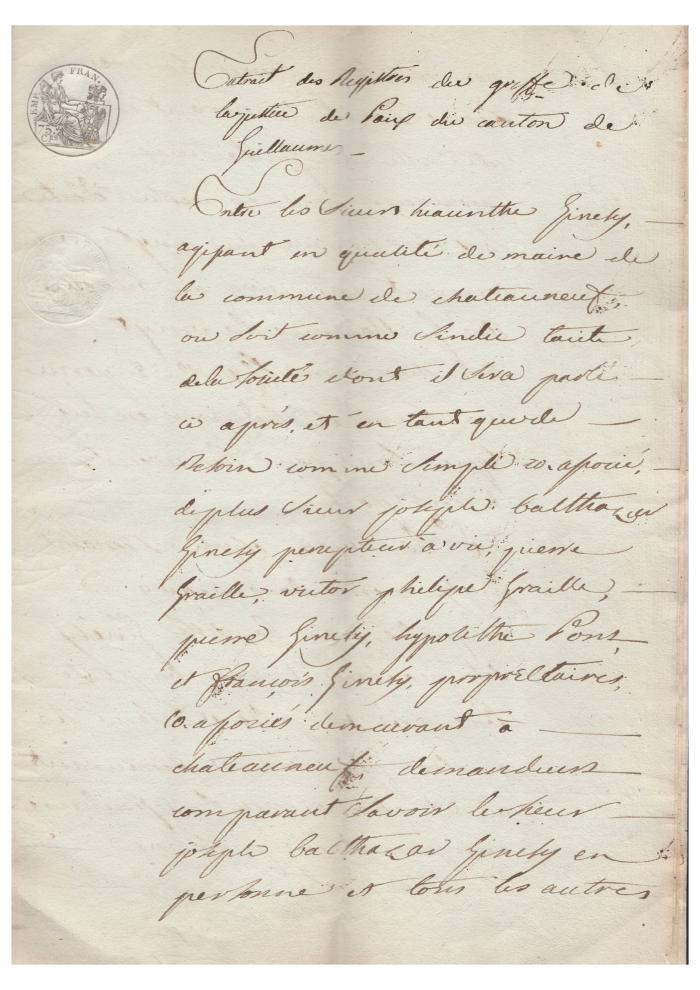 EMP. FRAN.
75 c
Extrait des Registres du greffe de
la justice de Paix du canton de
Guillaumes
Entre les Sieurs hiacinthe Ginesy,
agissant en qualité de maire de
la commune de chateauneuf,
ou soit comme Sindic
de la Société dont il sera parlé
ci après, et en tant que de
Besoin comme simple co-associé,
de plus Sieur joseph balthazar
Ginesy percepteur à vie, pierre
Graille, victor philipe Graille,
pierre Ginesy, hypolithe Pons,
et françois Ginesy, propriétaires,
co-associés demeurant a
chateauneuf demandeurs
comparant Savoir le sieur
joseph balthazar Ginesy en
personne et tous les autres